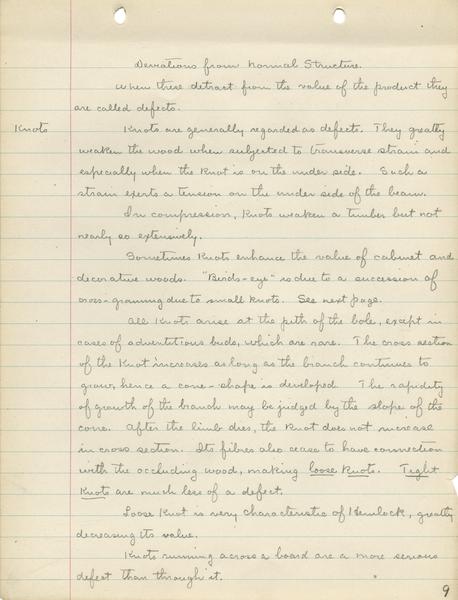 Deviations from Normal Structure.
When these detract from the value of the product they
are called defects.
Knots
Knots are generally regarded as defects. They greatly
weaken the wood when subjected to transverse strain and
especially when the knot is on the under side. Such a
strain exerts a tension on the under side of the beam.
In compression, knots weaken a timber but not
nearly so extensively.
Sometimes knots enhance the value of cabinet and
decorative woods. "Birds-eye" is due to a succession of
cross-graining due to small knots. See next page.
All knots arise at the pith of the bole, except in
cases of adventitious buds, which are rare. The cross section
of the knot increases as long as the branch continues to
grow, hence a cone-shape is developed. The rapidity
of growth of the branch may be judged by the slope of the
cone. After the limb dies, the knot does not increase
in cross section. Its fibres also cease to have connection
with the occluding wood, making loose knots. Tight
knots are much less of a defect.
Loose knot is very characteristic of Hemlock, greatly
decreasing its value.
Knots running across a board are a more serious
defect than through it.
9